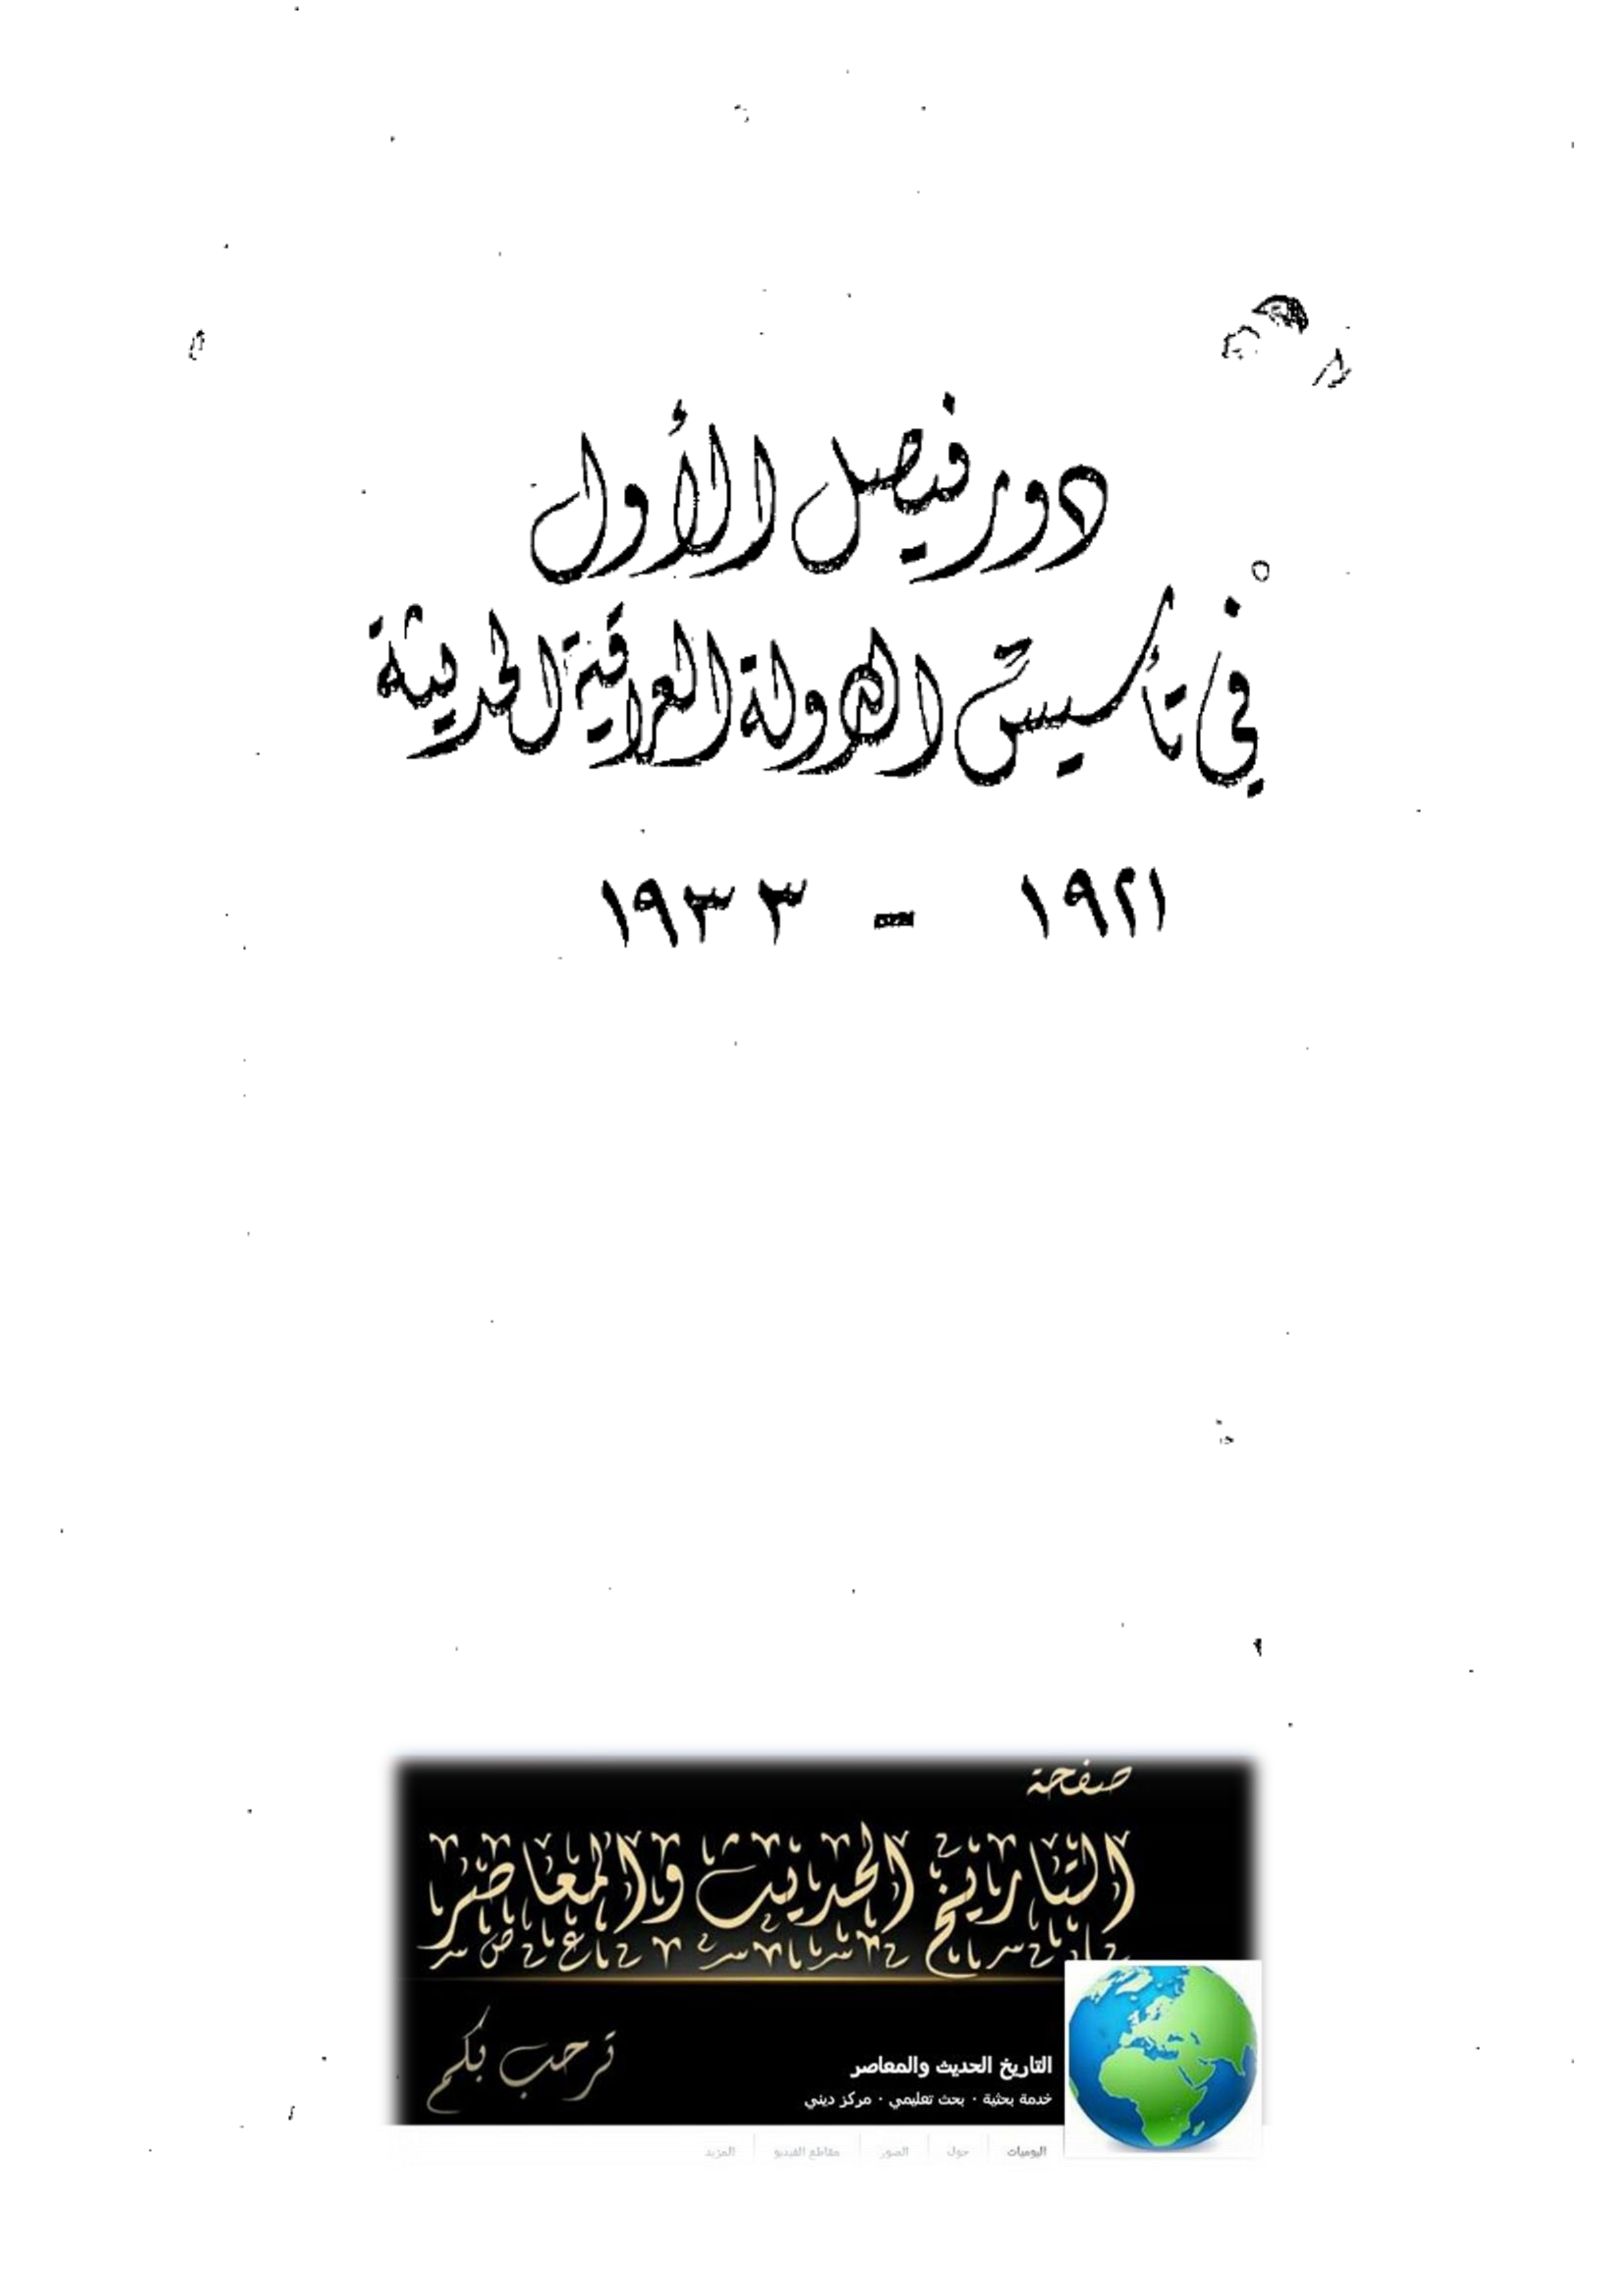 دور فيصل الأول
في تأسيس الدولة العراقية الحديثة
١٩٢١ - ١٩٣٣
صفحة
التاريخ الحديث والمعاصر
ترحب بكم
التاريخ الحديث والمعاصر
خدمة بحثية · بحث تعليمي · مركز ديني
اليوميات حول الصور مقاطع الفيديو المزيد